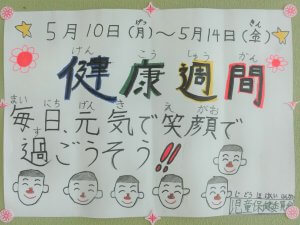 5月10日(月)～5月14日(金)
健康週間
毎日、元気で笑顔で
過ごうそう!!
児童保健委員会